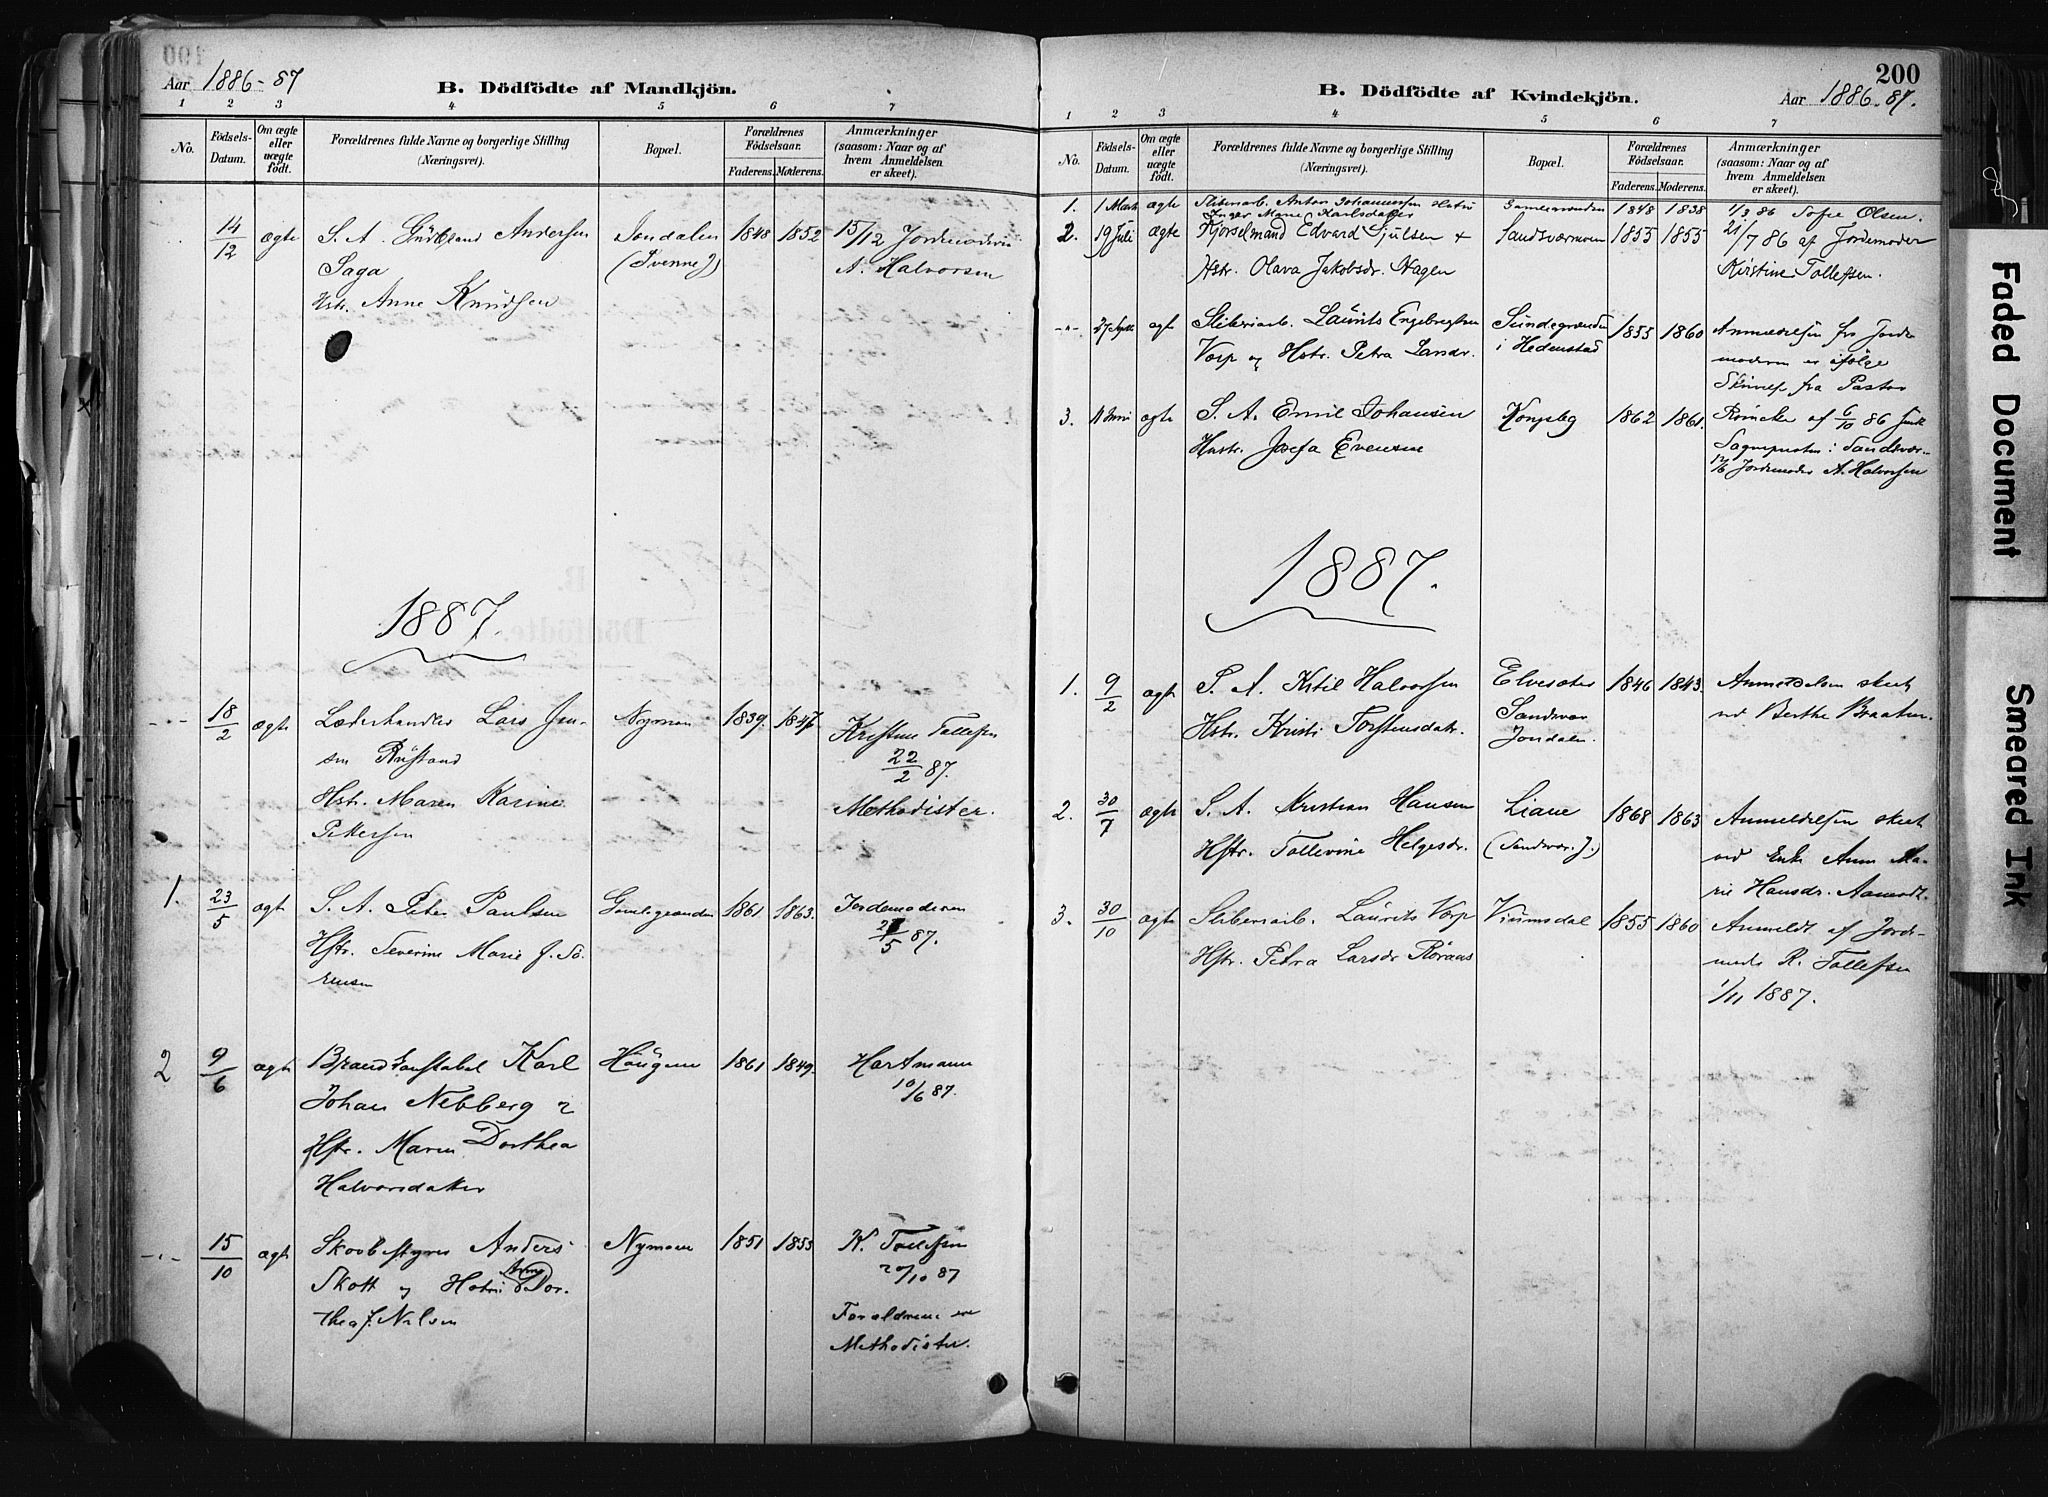 Aar 1886-87
B. Dödfödte af Mandkjön.
1 2 3 4 5 6 7
No.
Födsels-Datum.
Om ægte eller uægte födt.
Forældrenes fulde Navne og borgerlige Stilling (Næringsvei).
Bopæl.
Forældrenes Födselsaar.
Faderens. Moderens.
Anmærkninger (saasom: Naar og af hvem Anmeldelsen er skeet).
14/12 ægte S. A. Gudbrand Andersen Jondalen 1848 1852 15/12 Jordemoderen
Saga (Svenne J) A. Halvorsen
Hstr. Anne Knudsen
1887.
-"- 18/2 ægte Læderhandler Lars Jen- Nymoen 1839. 1847. Kristine Tollefsen
sen Rustand 22/2 87.
Hstr. Maren Karine Methodister.
Pettersen
1. 23/5 ægte S. A. Peter Paulsen Gamlegrænden 1861 1863. Jordemoderen
Hstr. Severine Marie J. Sö- /5 87.
rensen
2 9/6 ægte Brandkonstabel Karl Haugene 1861 1849. Hartmann
Johan Nebberg & 10/6 87.
Hstr. Maren Dorthea
Halvorsdatter
-"- 15/10 ægte Skovbestyrer Anders Nymoen 1851 1855 K. Tollefsen
Skott og Hstru Anne Dor- 20/10 87
thea J. Nilsen Forældrene ere
Methodister.
200
B. Dödfödte af Kvindekjön.
Aar 1886-87.
1 2 3 4 5 6 7
No.
Födsels-Datum.
Om ægte eller uægte födt.
Forældrenes fulde Navne og borgerlige Stilling (Næringsvei).
Bopæl.
Forældrenes Födselsaar.
Faderens. Moderens.
Anmærkninger (saasom: Naar og af hvem Anmeldelsen er skeet).
1. 1 Marts ægte Sliberiarb. Anton Johannessen Hstru Gamlegrænden 1848 1838 1/3 86 Sofie Olsen.
Inger Marie Karlsdatter
2. 19 Juli ægte Kjörselmand Edvard Hjulsen & Sandsværmoen 1855 1855 21/7 86 af Jordemoder
Hstr. Olava Jakobsdr. Hagen Kirstine Tollefsen.
-"- 27 ægt Sliberiarb. Laurits Engebregtsen Sundegrænden 1855 1860 Anmeldelsen fra Jorde
Vorp og Hstr. Petra Larsdr. i Hedenstad moderen er ifølge
Skrivelse fra Pastor
3. 11 Juni ægte S. A. Emil Johansen Kongsbg 1862 1861. Röncker af 6/10 86
Hustr. Josefa Evensen Sogneprsten i Sandsvær-
12/6 Jordemoder A. Halvorsen
1887.
1. 9/2 ægte S. A. Kitil Halvorsen Elvesæter 1846 1843. Anmeldelsen skeet
Hstr. Kristi Torstensdatr. Sandsvær ved Berthe Braaten.
Jondalen
2. 30/7 ægte S. A. Kristian Hansen Liane 1868 1863 Anmeldelsen skeet
Hstr. Tollevine Helgesdr. (Sandsvær. J.) ved Enke Anne Ma-
rie Hansdr. Aamodt.
3. 30/10 ægte Sliberiarb. Laurits Vorp Vinmsdal 1855 1860 Anmeldt af Jorde-
Hstr. Petra Larsdr Röraas moder K. Tollefsen
1/11 1887.
Faded Document
Smeared Ink